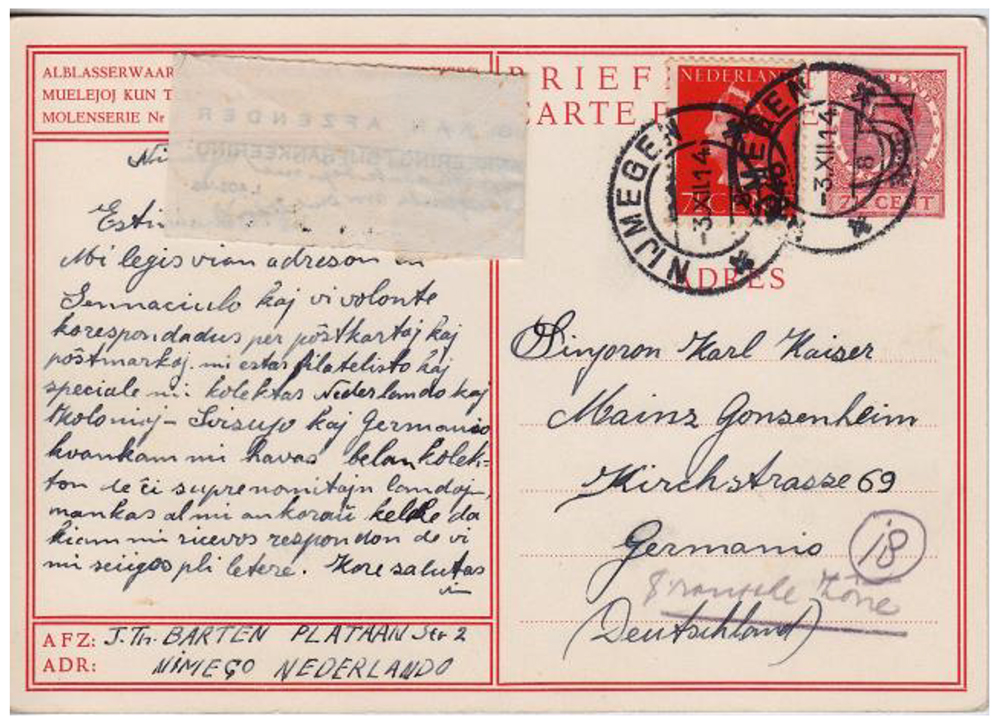 ALBLASSERWAAR
MUELEJOJ KUN T
MOLENSERIE Nr
AAN AFZENDER
Ni
Esti
Mi legis vian adreson en
Sennaciulo kaj vi volonte
korespondadus per pôstkartoj kaj
pôstmarkoj. mi estas filatelisto kaj
speciale mi kolektas Nederlando kaj
Kolonioj - Svisujo kaj Germanio
kvankam mi havas belan kolek-
ton de ĉi suprenomitajn landoj,
mankas al mi ankoraŭ kelke da
kiam mi ricevos respondon de vi
mi sciigos pli letere. Kore salutas
vin
AFZ: J.Th. BARTEN PLATAAN Str 2
ADR: NIMEGO NEDERLANDO
BRIEF
CARTE P
NEDERLAND
7½ C
7½ CENT
NIJMEGEN
-3.XII.14
NIJMEGEN
-3.XII.14
8
ADRES
Sinjoron Karl Kaiser
Mainz Gonsenheim
Kirchstrasse 69
Germanio
18
Zone
(Deutschland)